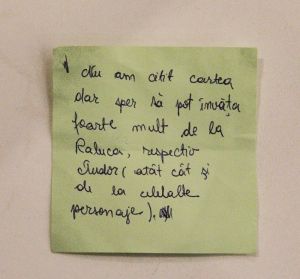 Nu am citit cartea
dar sper să pot învăța
foarte mult de la
Raluca, respectiv
Tudor ( atât cât și
de la celelalte
personaje).